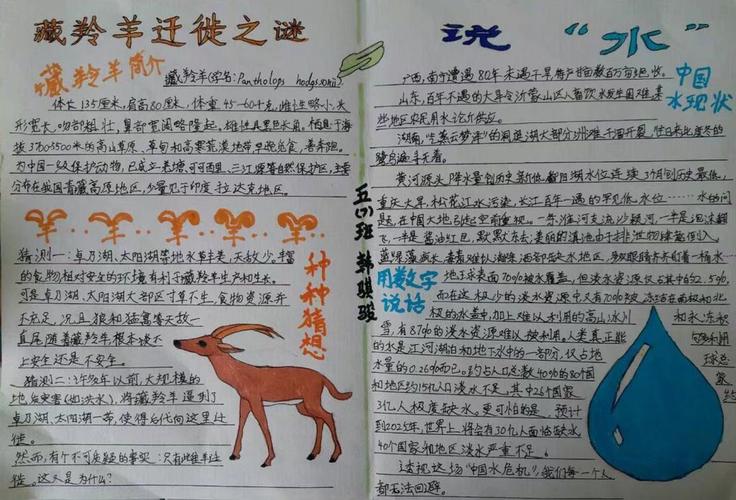 藏羚羊迁徙之谜
藏羚羊简介
藏羚羊(学名:Pantholops hodgsonii),
体长135厘米,肩高80厘米,体重45-60千克,雌性略小。头
形宽长,吻部粗壮,鼻部宽阔略隆起。雄性具黑色长角。栖息于海
拔3700-5500米的高山草原、草甸和高寒荒漠地带早晚觅食,善奔跑。
为中国一级保护动物,已成立羌塘、可可西里、三江源等自然保护区,主要
分布在我国青藏高原地区,少量见于印度拉达克地区。
种种猜想
猜测一:卓乃湖、太阳湖等地水草丰美,天敌少,丰富
的食物相对安全的环境有利于藏羚羊生产和生长。
可是卓乃湖、太阳湖大部区寸草不生,食物资源并
不充足,况且狼和猛禽等天敌一
直尾随着藏羚羊根本谈不
上安全还是不安全。
猜测二:许多年以前,大规模的
地质灾害(如洪水),将藏羚羊逼到了
卓乃湖、太阳湖一带,使得后代向这里迁
徙。
然而,有个不可质疑的事实:只有雌羊迁
徙。这又是为什么?
五(1)班 韩骐骏
说“水”
中国水现状
广西,南宁遭遇80年未遇干旱
山东,百年不遇的大旱令沂蒙山区人畜饮水发生困难,某
些地区农民用水论斤供应。
湖南,“气蒸云梦泽”的洞庭湖大部分洲滩干涸开裂,
黄河源头降水量创历史新低,鄱阳湖水位连续3个月创历史最低,
重庆大旱,松花江水污染,长江百年一遇的罕见低水位……水的问
题,在中国大地引起空前重视。一条淮河支流沙颍河,一半是泡沫翻
飞,一半是酱油红色,默默东去;美丽的滇池由于排泄物肆意倒入,
用数字说话
地球表面70%被水覆盖,但淡水资源仅占其中的2.5%,
而在这极少的淡水资源中又有70%被冻结在南极和北
极的冰盖中,加上难以利用的高山冰川和永冻积
雪,有87%的淡水资源难以被利用。人类真正能够利用
的水是江河湖泊和地下水中的一部分,仅占地球总
水量的0.26%而已。约占人口总数40%的80个国家
和地区约15亿人口淡水不足,其中26个国家
3亿人极度缺水。更可怕的是,预计
到2025年,世界上将会有30亿人面临缺水
40个国家和地区淡水严重不足。
透视这场“中国水危机”,我们每一个人
都无法回避。